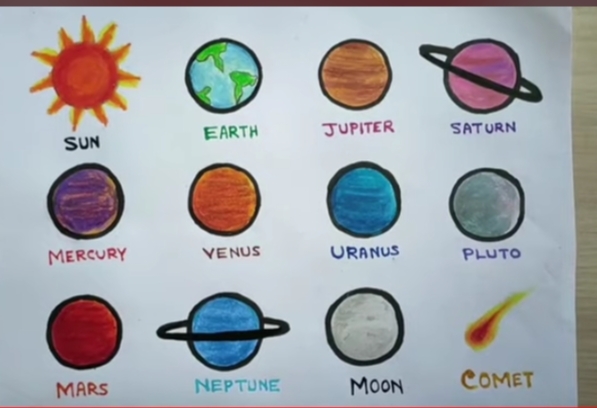 SUN
EARTH
JUPITER
SATURN
MERCURY
VENUS
URANUS
PLUTO
MARS
NEPTUNE
MOON
COMET